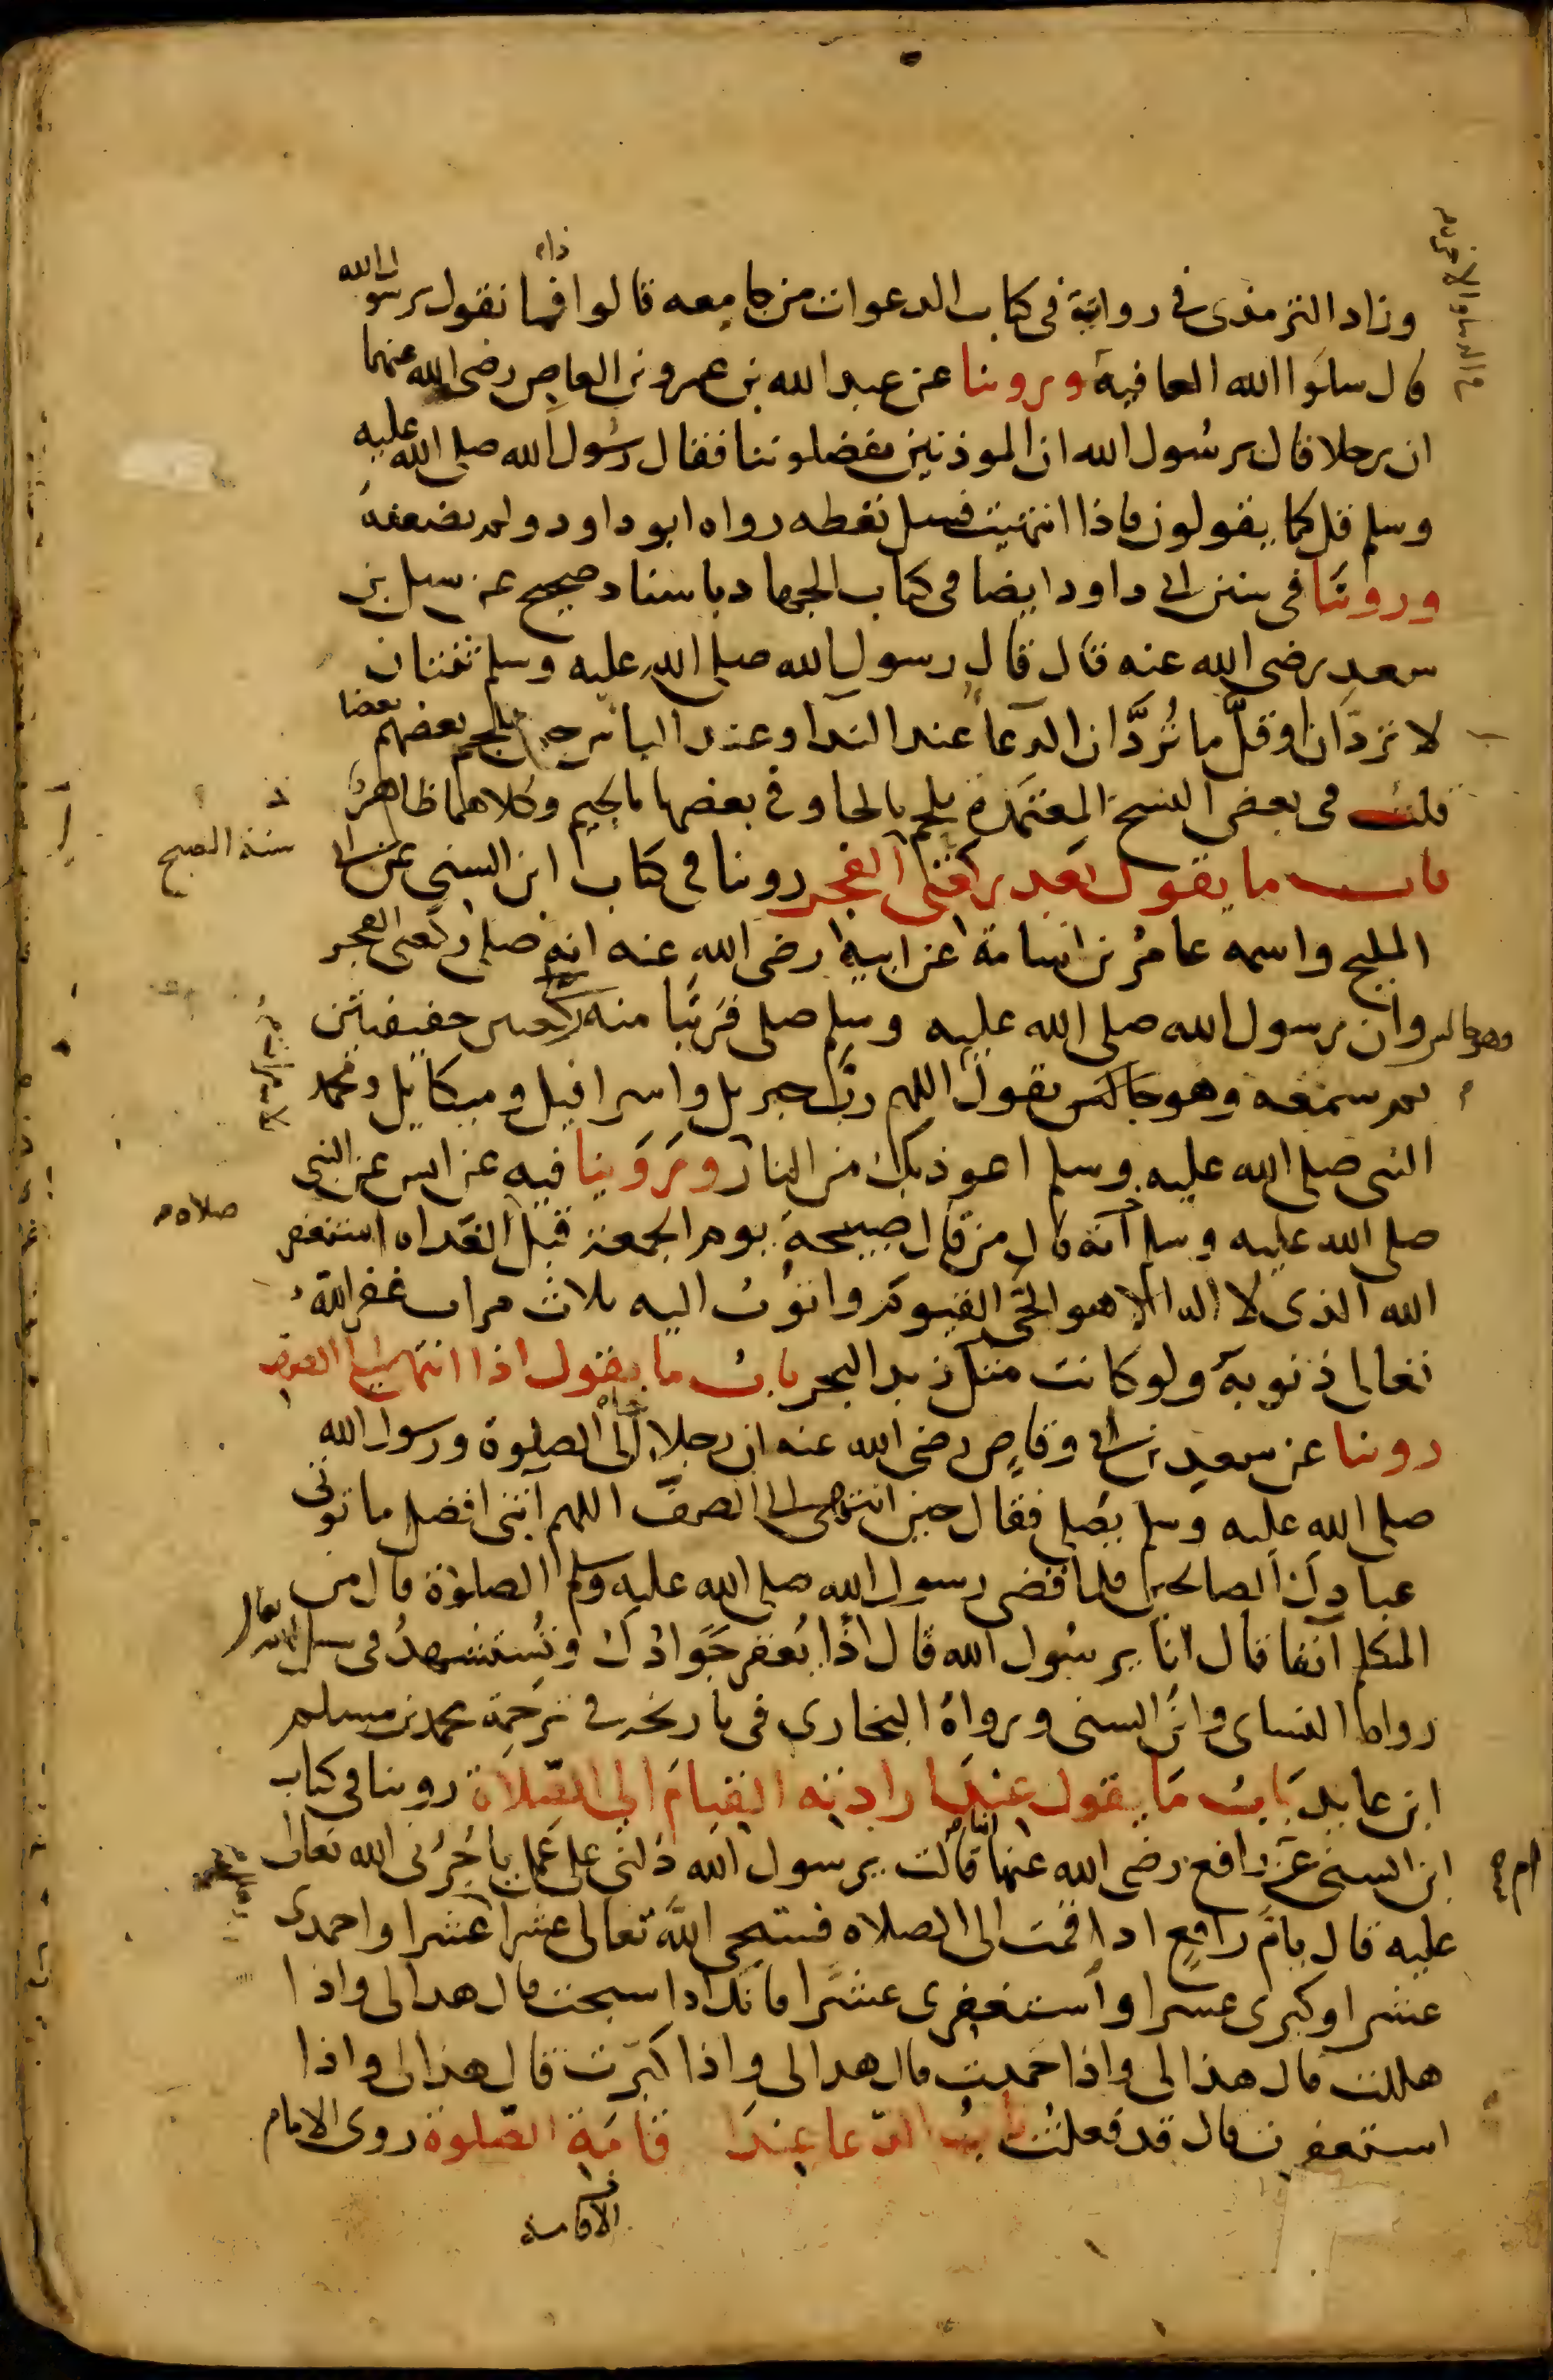 وزاد الترمذي في رواية في كتاب الدعوات من جامعه قالوا فما نقول يرسول الله
قال سلوا الله العافية وروينا عن عبد الله بن عمرو بن العاص رضى الله عنهما
ان رجلا قال يرسول الله ان الموذنين يفضلوننا فقال رسول الله صلى الله عليه
وسلم قل كما يقولون فاذا انتهيت فسل تعطه رواه ابو داود ولم يضعفه
وروينا في سنن ابي داود ايضا في كتاب الجهاد باسناد صحيح عن سهل بن
سعد رضى الله عنه قال قال رسول الله صلى الله عليه وسلم ثنتان
لا تردان او قل ما تردان الدعا عند الندا وعند الباس حين يلحم بعضهم بعضا
قلت في بعض النسخ المعتمدة يلحم بالحا وفي بعضها بالجيم وكلاهما ظاهر
باب ما يقول بعد ركعتى الفجر روينا في كتاب ابن السني عن ابي
سنة الصبح
المليح واسمه عامر بن اسامة عن ابيه رضى الله عنه انه صلى ركعتى الفجر
وان رسول الله صلى الله عليه وسلم صلى قريبا منه ركعتين خفيفتين
وهو جالس
ثم سمعه وهو جالس يقول اللهم رب جبريل واسرافيل وميكايل ومحمد
النبي صلى الله عليه وسلم اعوذ بك من النار وروينا فيه عن انس عن النبي
صلى الله عليه وسلم انه قال من قال صبيحة يوم الجمعة قبل الغداه استغفر
صلاه
الله الذى لا اله الا هو الحى القيوم واتوب اليه ثلاث مرات غفر الله
تعالى ذنوبه ولو كانت مثل زبد البحر باب ما يقول اذا انتهى الى الصف
روينا عن سعد بن ابي وقاص رضى الله عنه ان رجلا جاء الى الصلوة ورسول الله
صلى الله عليه وسلم يصلى فقال حين انتهى الى الصف اللهم آتني افضل ما توتى
عبادك الصالحين فلما قضى رسول الله صلى الله عليه وسلم الصلوة قال من
المتكلم آنفا قال انا يرسول الله قال اذا يعقر جوادك وتستشهد في سبيل الله تعالى
رواه النساى وابن السنى ورواه البخارى في تاريخه في ترجمة محمد بن مسلم
ابن عايد باب ما يقول عند ارادته القيام الى الصلاة روينا في كتاب
ابن السنى عن رافع رضى الله عنها انها قالت يرسول الله دلني على عمل ياجرنى الله تعالى
ام
عليه قال يام رافع اذا قمت الى الصلاه فسبحى الله تعالى عشرا عشرا واحمدى
عشرا وكبرى عشرا واستغفرى عشرا فانك اذا سبحت قال هذا لى واذا
هللت قال هذا لى واذا حمدت قال هذا لى واذا كبرت قال هذا لى واذا
استغفرت قال قد فعلت باب الدعا عند اقامة الصلوة روى الامام
الاقامة